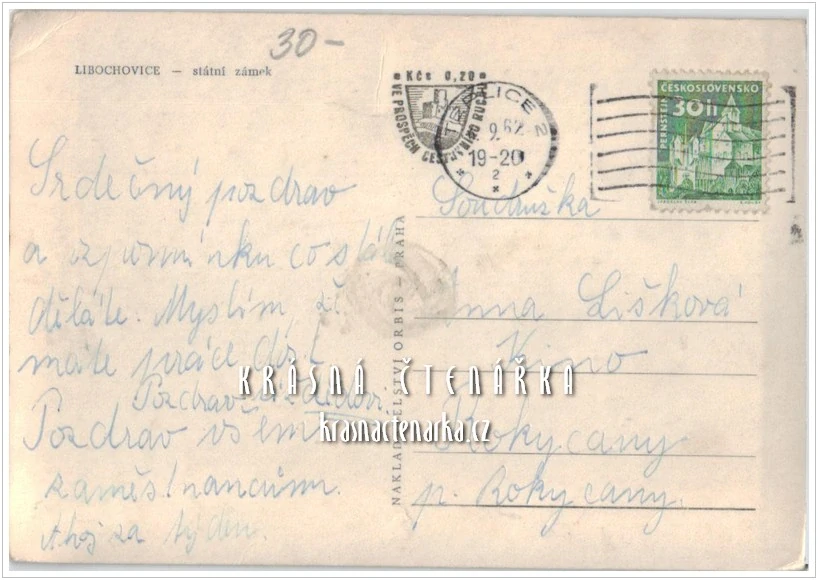 30-
LIBOCHOVICE — státní zámek
Kčs 0,20
VE PROSPĚCH CESTOVNÍHO RUCHU
TEPLICE 2
9.62
19-20
2
ČESKOSLOVENSKO
30 h
PERNŠTEJN
Srdečný pozdrav
a vzpomínku co stále
děláte. Myslím, že
máte práce dost
Pozdrav
Pozdrav všem
zaměstnancům.
Ahoj za týden.
NAKLADATELSTVÍ ORBIS — PRAHA
Soudružka
Anna Lišková
Kino
Rokycany
p. Rokycany.
KRÁSNÁ ČTENÁŘKA
krasnactenarka.cz